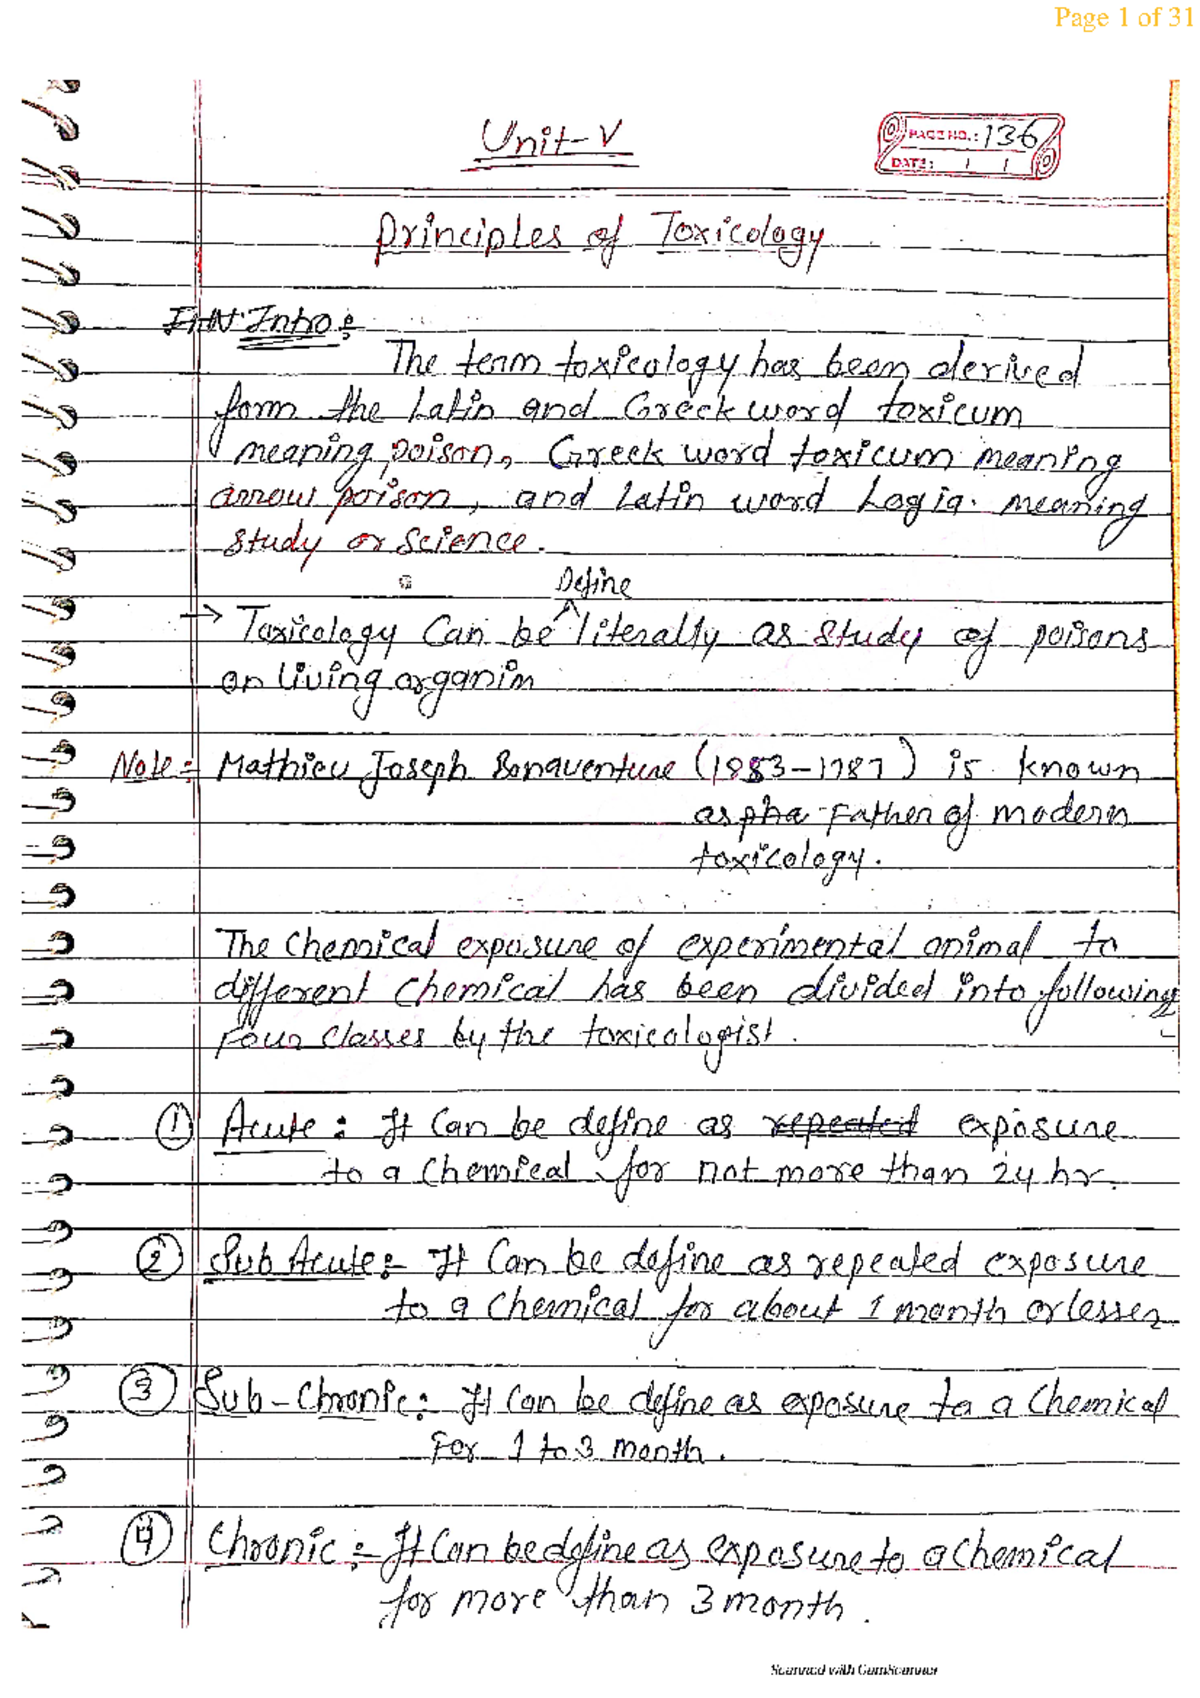 Page 1 of 31
Unit-V
PAGE NO.: 136
DATE: / /
Principles of Toxicology
Intro:
The term toxicology has been derived
form the Latin and Greek word toxicum
meaning poison, Greek word toxicum meaning
arrow poison, and Latin word Logia. meaning
study or Science.
Define
→ Toxicology Can be ^ literally as study of poisons
on living organim
Note:- Mathieu Joseph Bonaventure (1853-1787) is known
as pha Father of modern
toxicology.
The Chemical exposure of experimental animal to
different Chemical has been divided into following
Four classes by the toxicologist.
① Acute: It Can be define as repeated exposure
to a Chemical for not more than 24 hr.
② Sub Acute:- It Can be define as repeated exposure
to a Chemical for about 1 month or lesser
③ Sub-Chronic: It Can be define as exposure to a Chemical
For 1 to 3 month.
④ Chronic:- It Can be define as exposure to a Chemical
for more than 3 month.
Scanned with CamScanner